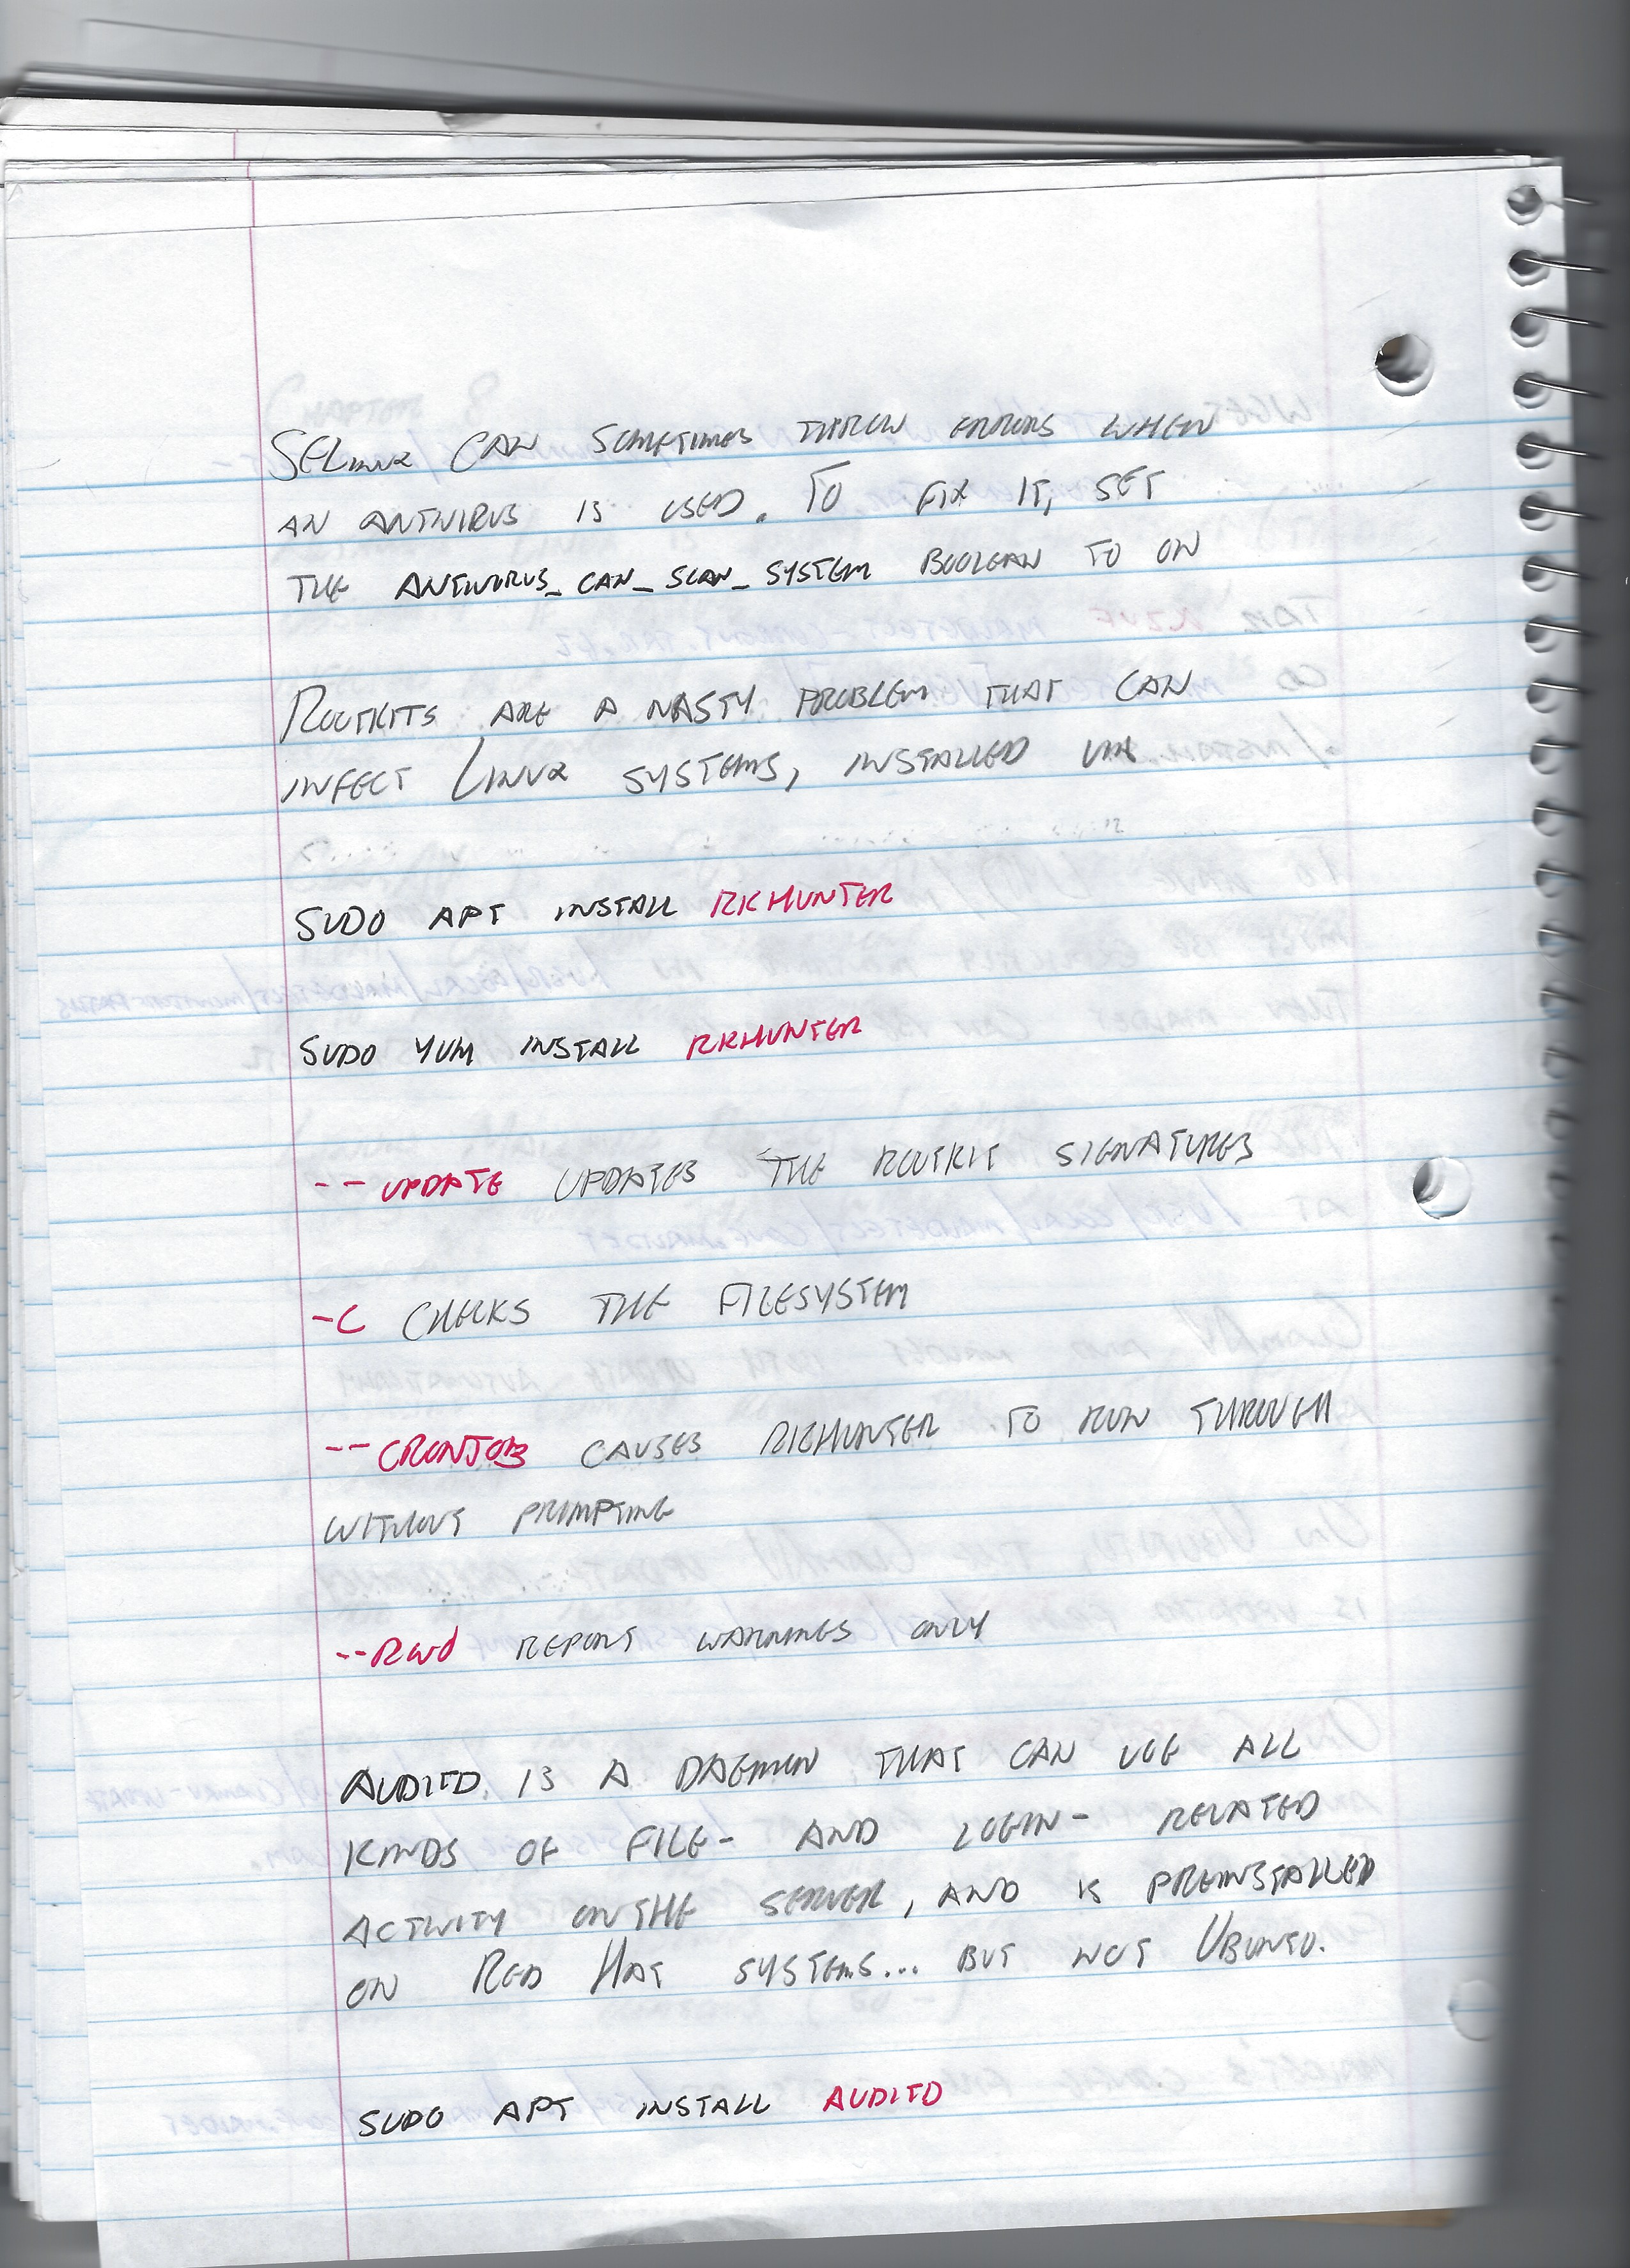 SELinux CAN SOMETIMES THROW ERRORS WHEN
AN ANTIVIRUS IS USED. TO FIX IT, SET
THE ANTIVIRUS_CAN_SCAN_SYSTEM BOOLEAN TO ON
ROOTKITS ARE A NASTY PROBLEM THAT CAN
INFECT LINUX SYSTEMS, INSTALLED VIA
SUDO APT INSTALL RKHUNTER
SUDO YUM INSTALL RKHUNTER
--UPDATE UPDATES THE ROOTKIT SIGNATURES
-C CHECKS THE FILESYSTEM
--CRONJOB CAUSES RKHUNTER TO RUN THROUGH
WITHOUT PROMPTING
--RWO REPORT WARNINGS ONLY
AUDITD IS A DAEMON THAT CAN LOG ALL
KINDS OF FILE- AND LOGIN- RELATED
ACTIVITY ON THE SERVER, AND IS PREINSTALLED
ON RED HAT SYSTEMS... BUT NOT UBUNTU.
SUDO APT INSTALL AUDITD